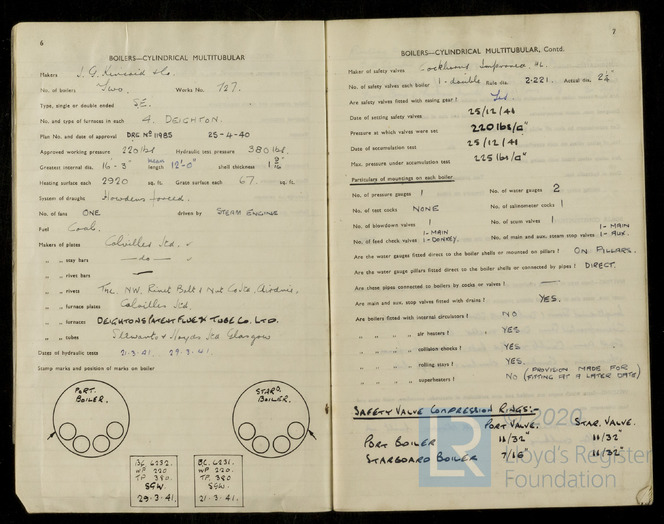 6
BOILERS—CYLINDRICAL MULTITUBULAR
Makers J. G. Kincaid & Co.
No. of boilers Two. Works No. 127.
Type, single or double ended S.E.
No. and type of furnaces in each 4. DEIGHTON.
Plan No. and date of approval DRG No 11985 25-4-40
Approved working pressure 220 lbs. Hydraulic test pressure 380 lbs.
Greatest internal dia. 16-3" mean length 12'-0" shell thickness
Heating surface each 2920 sq. ft. Grate surface each 67. sq. ft.
System of draught Howdens forced.
No. of fans ONE driven by STEAM ENGINE
Fuel Coal.
Makers of plates Colvilles Ltd.
„ „ stay bars —do—
„ „ rivet bars —
„ „ rivets The N.W. Rivet Bolt & Nut Co Ltd, Airdrie.
„ „ furnace plates Colvilles Ltd,
„ „ furnaces DEIGHTONS PATENT FLUE & TUBE CO. LTD.
„ „ tubes Stewarts & Lloyds Ltd Glasgow
Dates of hydraulic tests 21.3.41. 29.3.41.
Stamp marks and position of marks on boiler
PORT. BOILER.
STARD BOILER.
BC. 6232.
WP 220
TP. 380.
SGW.
29-3-41.
BC. 6231.
WP 220.
TP. 380
SGW.
21-3-41.
7
BOILERS—CYLINDRICAL MULTITUBULAR, Contd.
Maker of safety valves Cockburns Improved H.L.
No. of safety valves each boiler 1-double Rule dia. 2.221. Actual dia.
Are safety valves fitted with easing gear? Yes
Date of setting safety valves 25/12/41
Pressure at which valves were set 220 lbs/□"
Date of accumulation test 25/12/41
Max. pressure under accumulation test 225 lbs/□"
Particulars of mountings on each boiler.
No. of pressure gauges 1 No. of water gauges 2
No. of test cocks NONE No. of salinometer cocks 1
No. of blowdown valves 1 No. of scum valves 1
No. of feed check valves 1-MAIN 1-DONKEY. No. of main and aux. steam stop valves 1-MAIN 1-AUX.
Are the water gauges fitted direct to the boiler shells or mounted on pillars? ON PILLARS.
Are the water gauge pillars fitted direct to the boiler shells or connected by pipes? DIRECT.
Are these pipes connected to boilers by cocks or valves? —
Are main and aux. stop valves fitted with drains? YES.
Are boilers fitted with internal circulators? NO
„ „ „ „ air heaters? YES
„ „ „ „ collision chocks? YES
„ „ „ „ rolling stays? YES.
„ „ „ „ superheaters? NO (PROVISION MADE FOR FITTING AT A LATER DATE)
SAFETY VALVE COMPRESSION RINGS:-
PORT VALVE. STAR. VALVE.
PORT BOILER 11/32" 11/32"
STARBOARD BOILER 7/16" 11/32"
LR
©2020
Lloyd's Register
Foundation